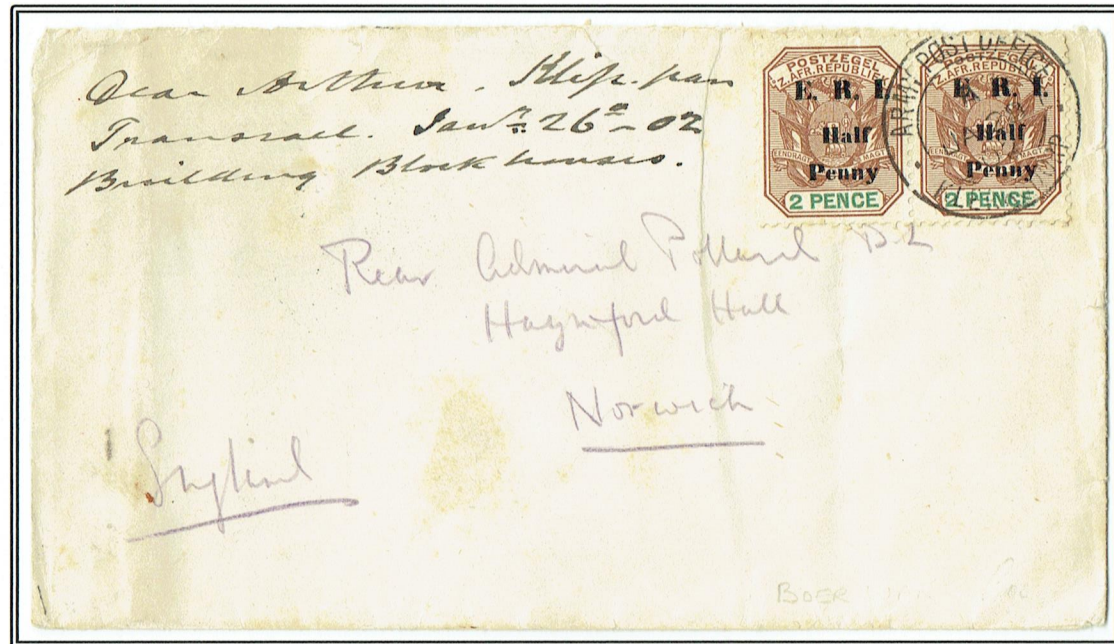 Dear Arthur. Klip-pan
Transvaal. Jany. 26th - 02
Building Blockhouses.
POSTZEGEL
Z. AFR. REPUBLIEK
E. R. I.
Half
Penny
EENDRAGT MAAKT MAGT
2 PENCE
POSTZEGEL
Z. AFR. REPUBLIEK
E. R. I.
Half
Penny
2 PENCE
ARMY POST OFFICE
Rear Admiral Pollard D. L
Haynford Hall
Norwich
England
BOER